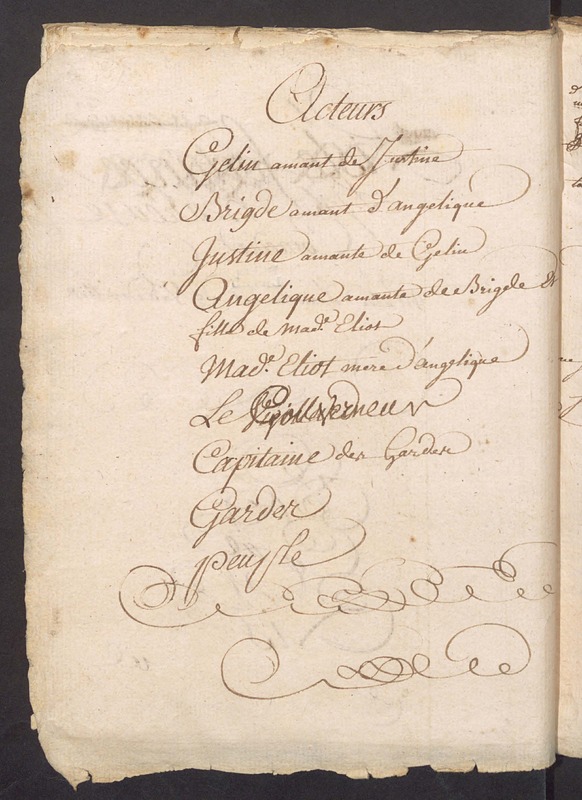 Acteurs
Gelin amant de Justine
Brigde amant d'angelique
Justine amante de Gelin
Angelique amante de Brigde et
fille de Mad.e Eliot
Mad.e Eliot mere d'angelique
Le Gouverneur
Capitaine des Gardes
Gardes
peuple